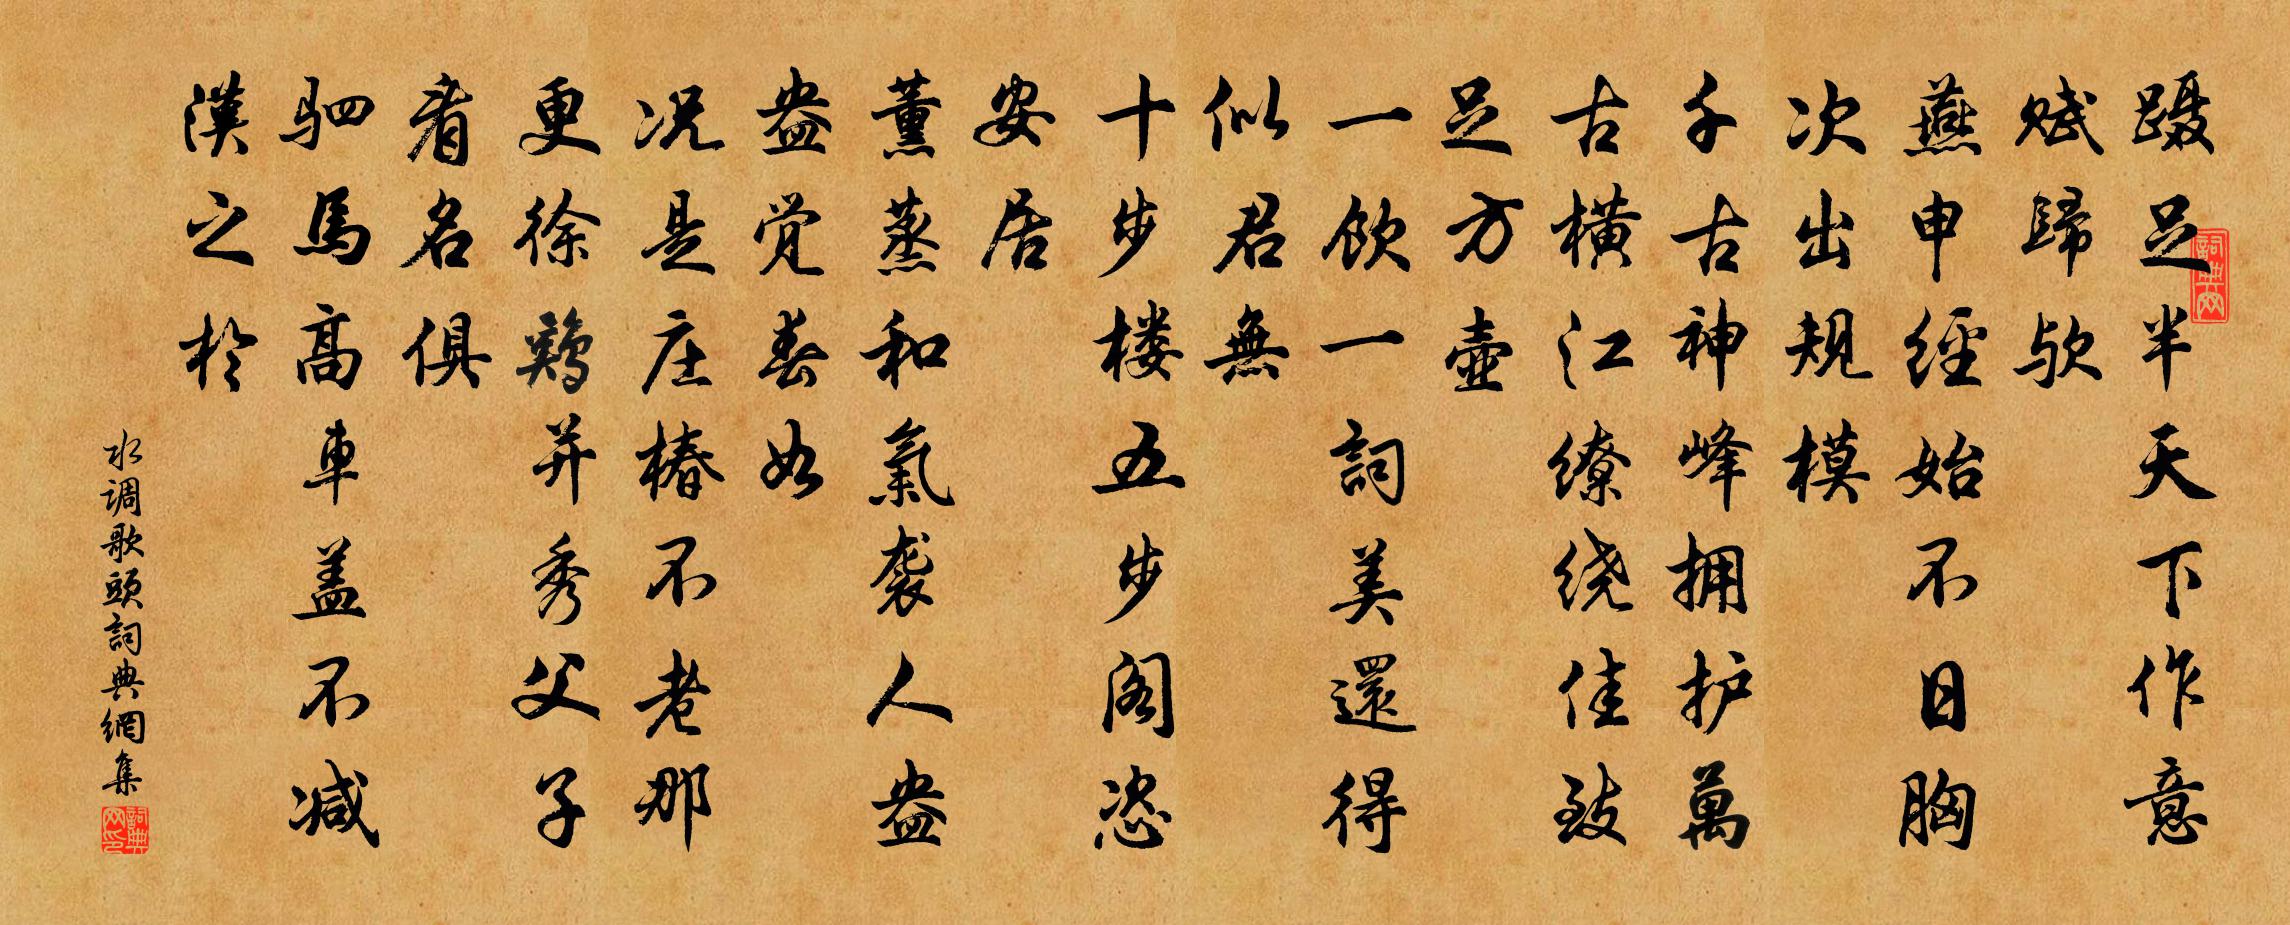 蹑足半天下作意
赋歸欤
燕申經始不日胸
次出規模
千古神峰拥护萬
古横江缭绕佳致
足方壺
一飲一詞美還得
似君無
十步楼五步阁恣
安居
薰蒸和氣袭人盎
盎觉春如
况是庄椿不老那
更徐鵁并秀父子
看名俱
驷馬高車盖不减
漢之於
水调歌頭詞典網集
詞典网
詞典网印